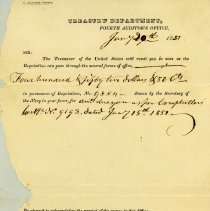 TREASURY DEPARTMENT,
FOURTH AUDITOR'S OFFICE,
Jany 29th 1851
SIR:
The Treasurer of the United States will remit you as soon as the
Requisition can pass through the several forms of office,
Four hundred & fifty two dollars & 50 Cts
in payment of Requisition, No. 9884 drawn by the Secretary of
the Navy in your favor for amt due you as per Comptrollers
Certf. No. 9193. dated Jany 15th 1851.